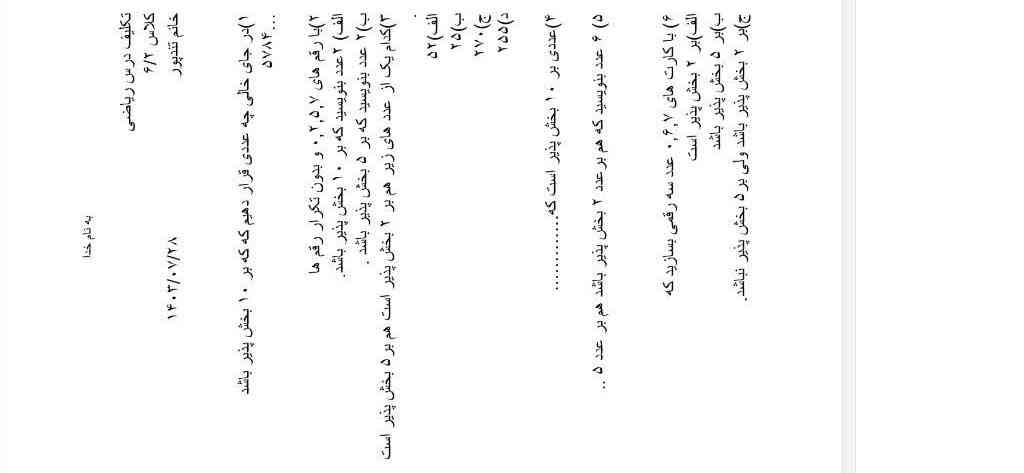 به نام خدا
تکلیف درس ریاضی
کلاس ۶/۲
خانم تندپور ۱۴۰۳/۰۷/۲۸
۱)در جای خالی چه عددی قرار دهیم که که بر ۱۰ بخش پذیر باشد
۵۷۸۴...
۲)با رقم های ۰,۲,۵,۷ و بدون تکرار رقم ها
الف) ۲عدد بنویسید که بر ۱۰ بخش پذیر باشد.
ب)۲ عدد بنویسید که بر ۵ بخش پذیر باشد .
۳)کدام یک از عدد های زیر هم بر ۲ بخش پذیر است هم بر ۵ بخش پذیر است
.
الف)۵۲
ب)۲۵
ج)۲۷۰
د)۲۵۵
۴)عددی بر ۱۰ بخش پذیر است که...............
۵) ۶ عدد بنویسید که هم برعدد ۲ بخش پذیر باشد هم بر عدد ۵ ..
۶) با کارت های ۰,۶,۷ عدد سه رقمی بسازید که
الف)بر ۲ بخش پذیر است
ب)بر ۵ بخش پذیر باشد
ج)بر ۲ بخش پذیر باشد ولی بر ۵ بخش پذیر نباشد.